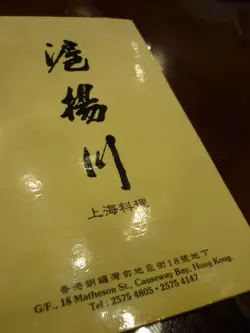 滬揚川
上海料理
香港銅鑼灣勿地臣街18號地下
G/F., 18 Matheson St., Causeway Bay, Hong Kong.
Tel : 2575 4805 • 2575 4147